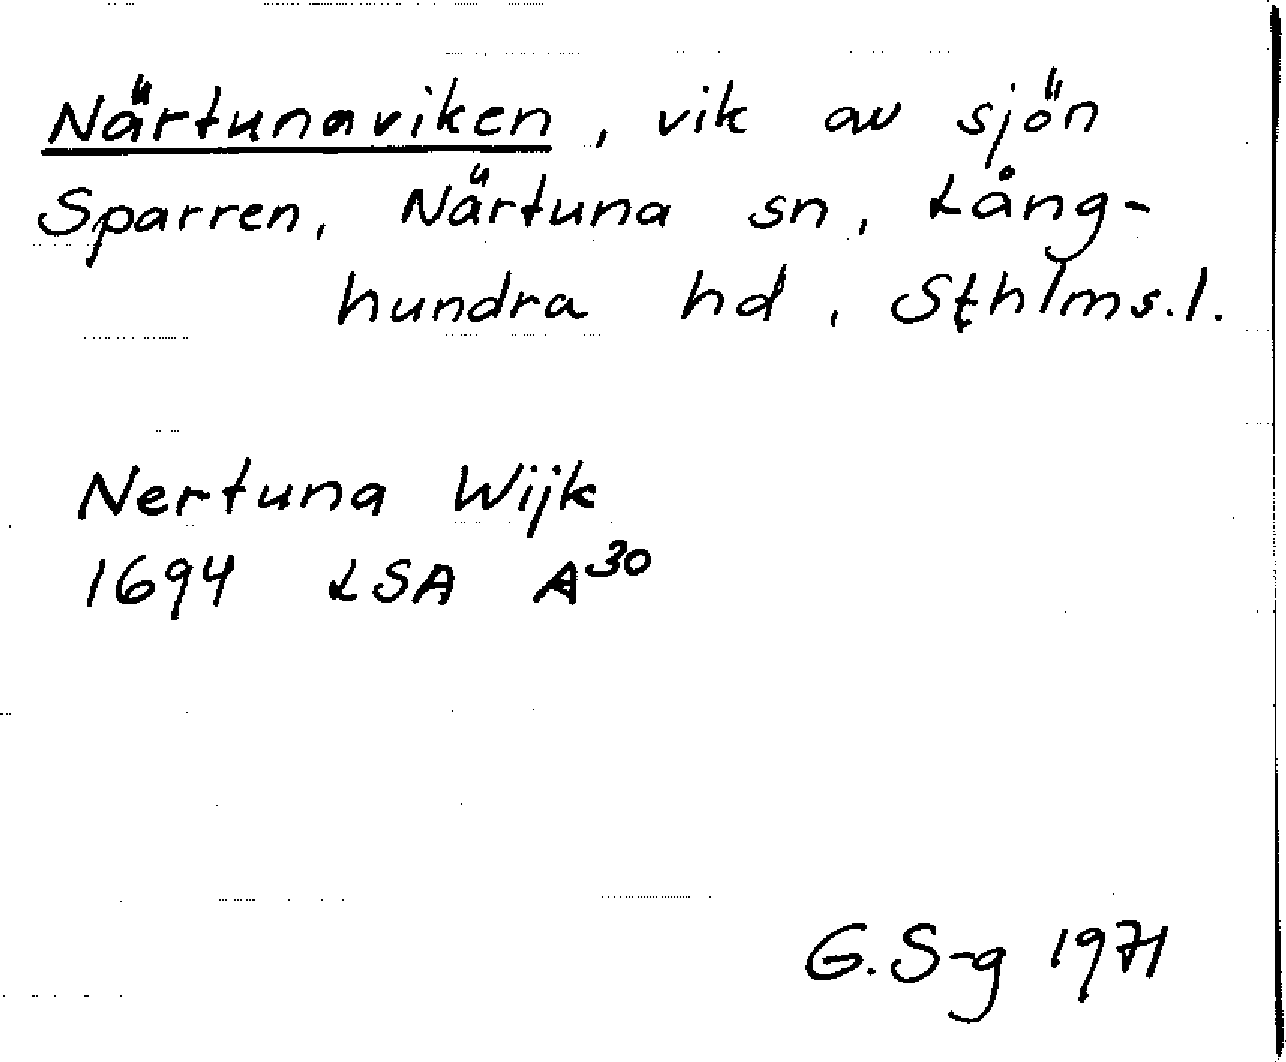 Närtunaviken, vik av sjön
Sparren, Närtuna sn, Lång-
hundra hd, Sthlms.l.
Nertuna Wijk
1694 LSA A30
G.S-g 1971